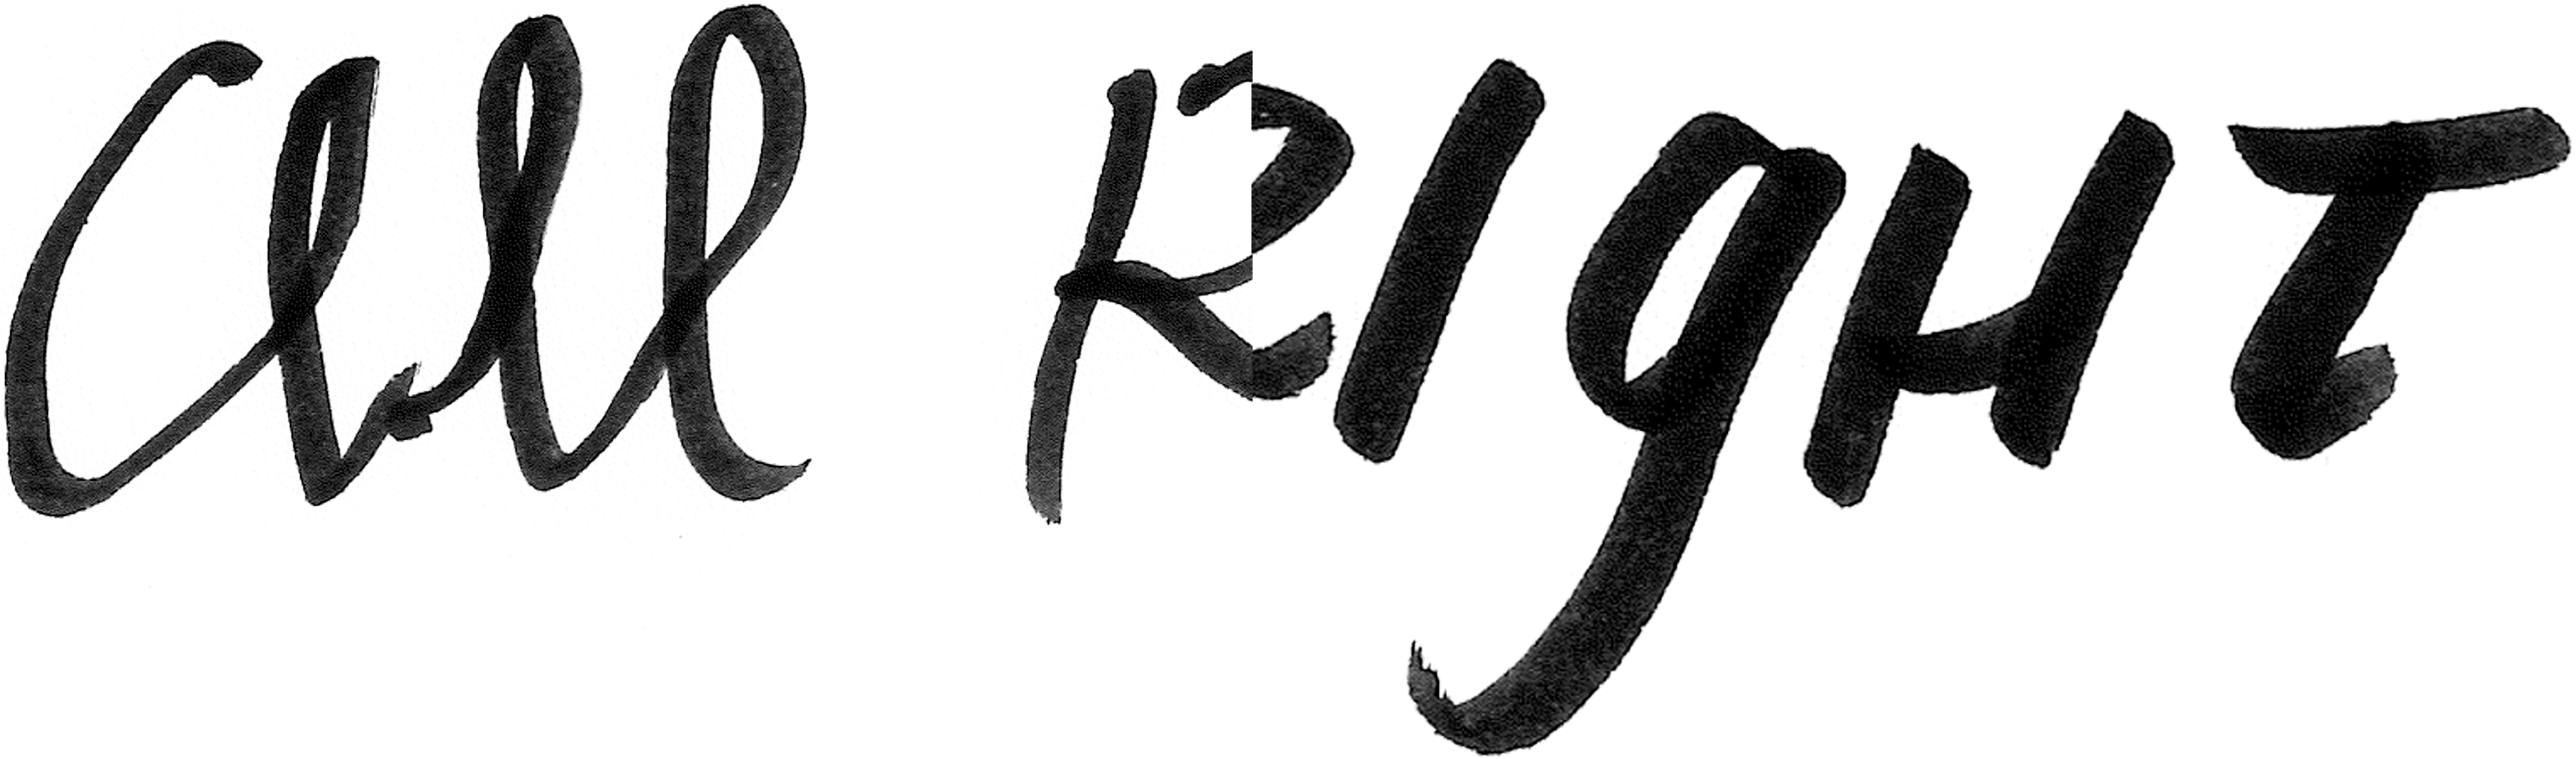 All RIgHT